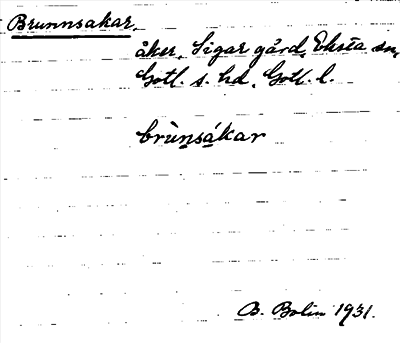 Brunnsakar,
åker, Sigar gård, Eksta sn,
Gotl. s. hd, Gotl. l.
brùnsákar
B. Bolin 1931.